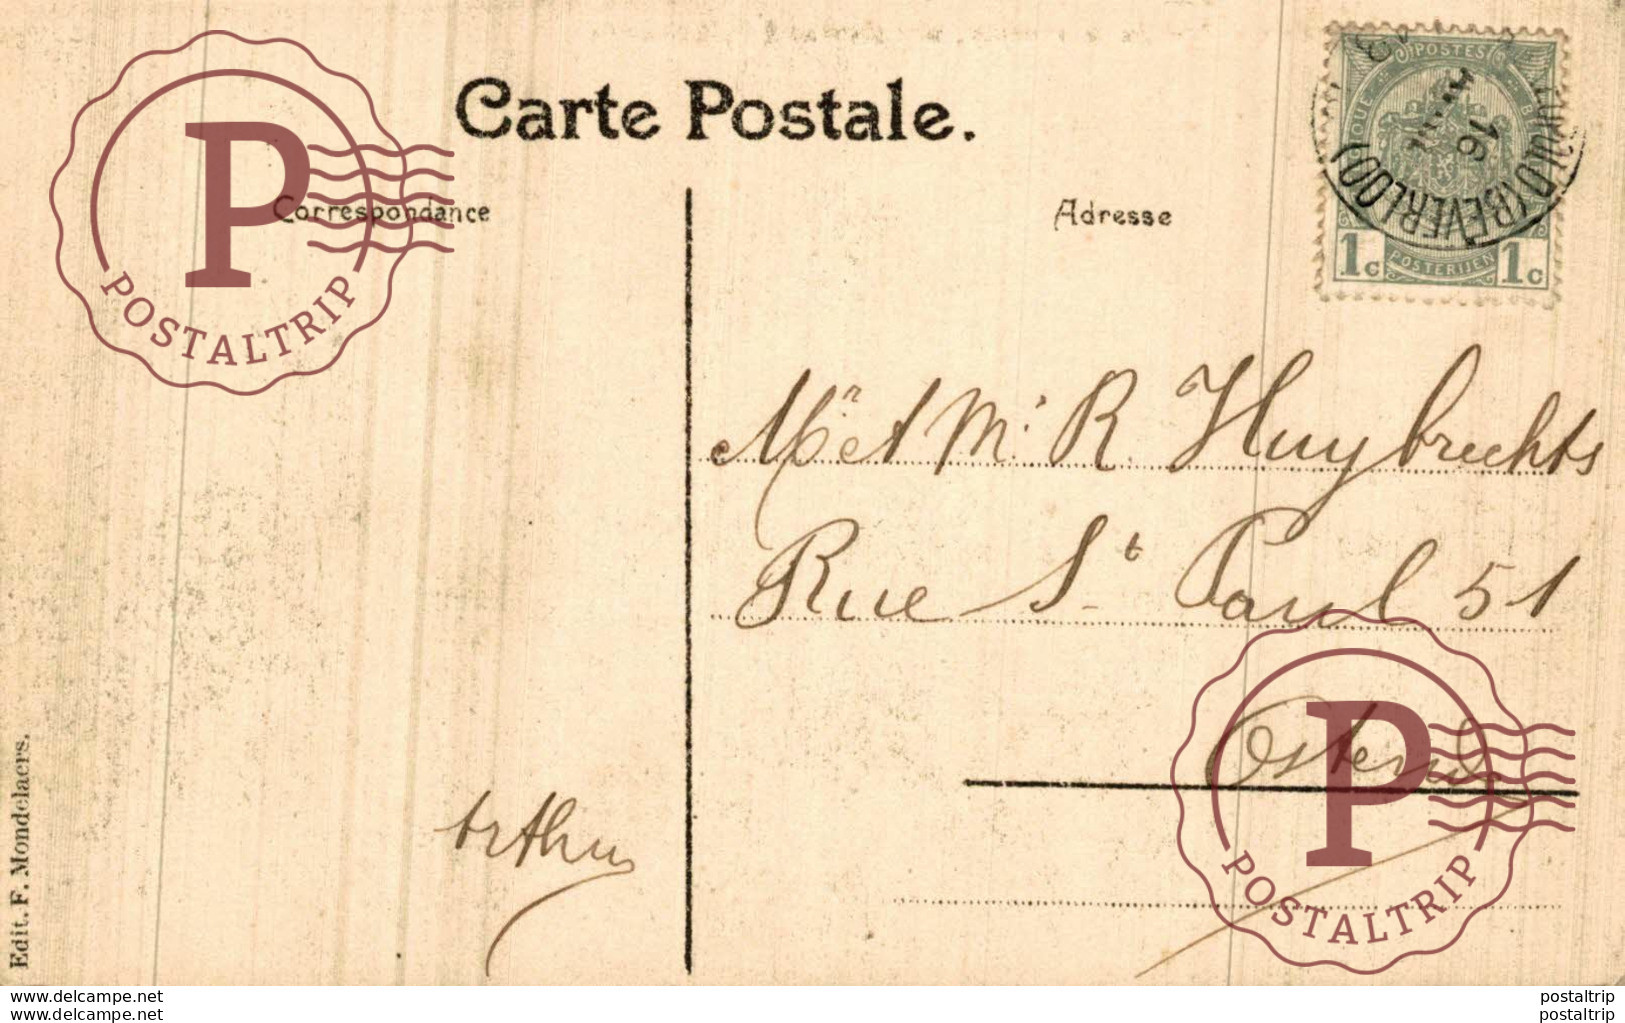 Carte Postale.
Correspondance
Adresse
POSTES
1c POSTERIJEN 1c
16
(BEVERLOO)
Mr et Me R. Huybrechts
Rue St Paul 51
Ostende
Arthur
Edit. F. Mondelaers.
P
POSTALTRIP
P
POSTALTRIP
www.delcampe.net postaltrip
www.delcampe.net postaltrip